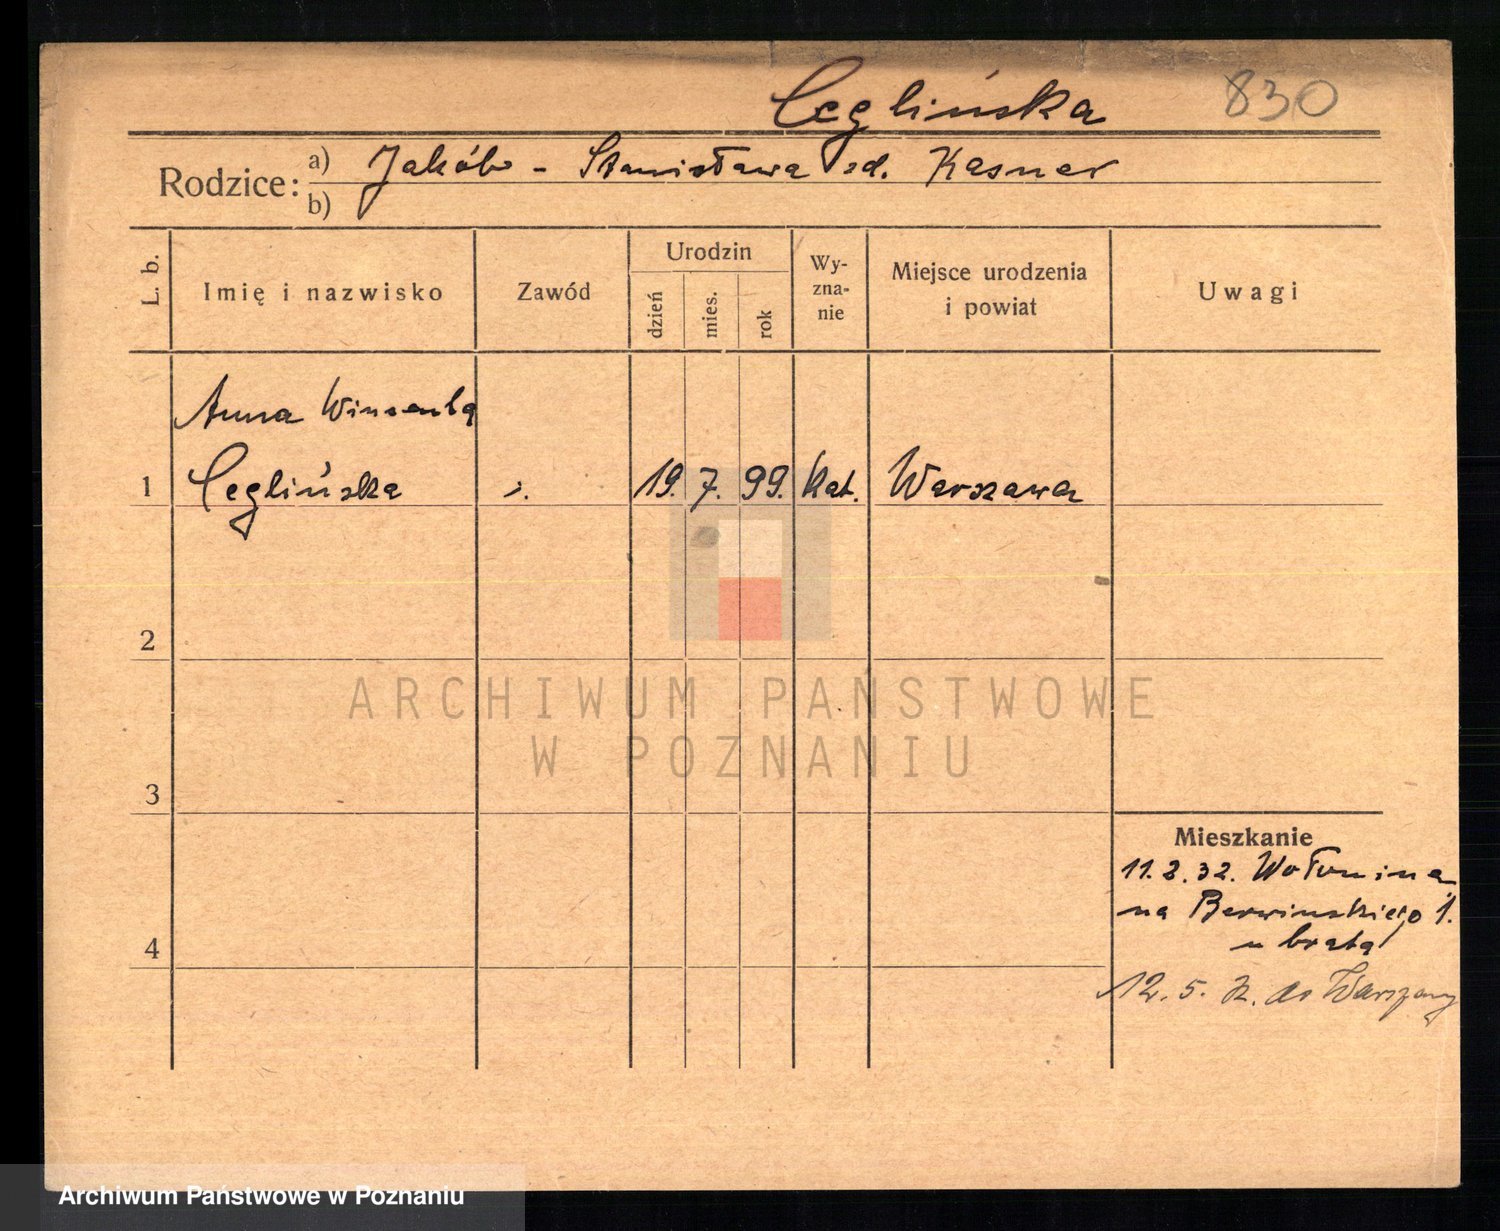 Ceglińska 830
Rodzice: a) Jakób - Stanisława zd. Kasner
b)
L. b.
Imię i nazwisko
Zawód
Urodzin
dzień
mies.
rok
Wy-
zna-
nie
Miejsce urodzenia
i powiat
Uwagi
Anna Wincenta
1 Ceglińska 19. 7. 99. Kat. Warszawa
2
3
4
ARCHIWUM PAŃSTWOWE
W POZNANIU
Mieszkanie
11.2.32. Wołomina
na Berwińskiego 1.
u brata
12. 5. 32. do Warszawy
Archiwum Państwowe w Poznaniu